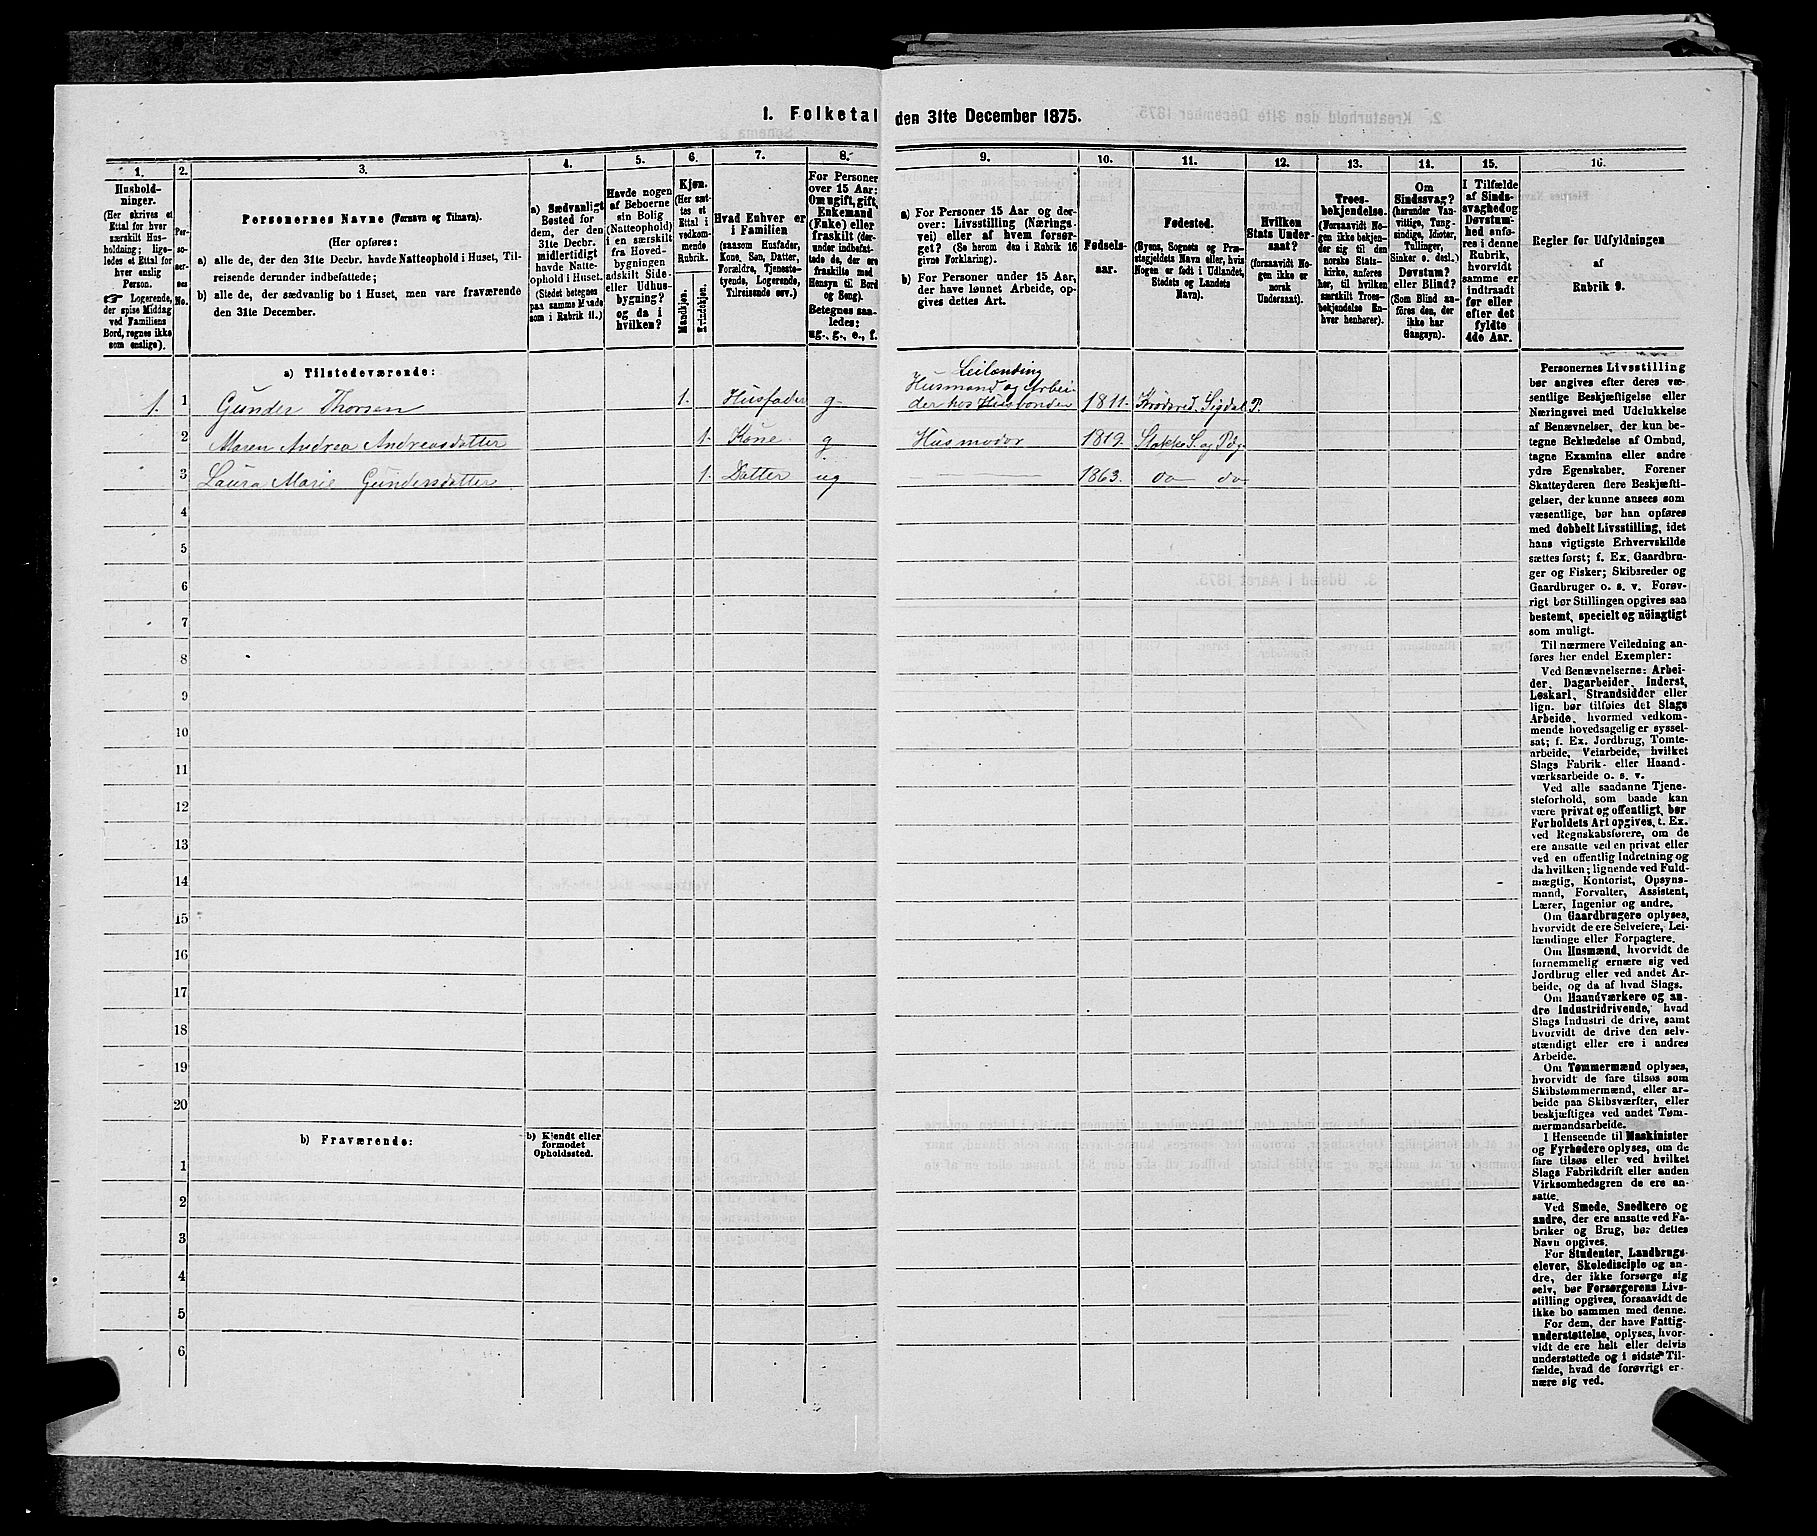 1. Folketal den 31te December 1875.
1.
2.
3.
4.
5.
6.
7.
8.
9.
10.
11.
12.
13.
14.
15.
16.
Hushold-
ninger.
(Her skrives et
Ettal for hver
særskilt Hus-
holdning; lige-
ledes et Ettal for
hver enslig
Person.
☞ Logerende,
der spise Middag
ved Familiens
Bord, regnes ikke
som enslige).
Per-
so-
ner-
nes
No.
Personernes Navne (Fornavn og Tilnavn).
(Her opføres:
a) alle de, der den 31te Decbr. havde Natteophold i Huset, Til-
reisende derunder indbefattede;
b) alle de, der sædvanlig bo i Huset, men vare fraværende
den 31te December.
a) Sædvanligt
Bosted for
dem, der den
31te Decbr.
midlertidigt
havde Natte-
ophold i Huset.
(Stedet betegnes
paa samme Maade
som i Rubrik 11.)
Havde nogen
af Beboerne
sin Bolig
(Natteophold)
i en særskilt
fra Hoved-
bygningen
adskilt Side-
eller Udhus-
bygning?
og da i
hvilken?
Kjøn.
(Her sæt-
tes et
Ettal i
vedkom-
mende
Rubrik.
Mandkjøn.
Kvindekjøn.
Hvad Enhver er
i Familien
(saasom Husfader,
Kone, Søn, Datter,
Forældre, Tjeneste-
tyende, Logerende,
Tilreisende osv.)
For Personer
over 15 Aar:
Om ugift, gift,
Enkemand
(Enke) eller
fraskilt (der-
under indbefat-
tede de, der ere
fraskilte med
Hensyn til Bord
og Seng).
Betegnes saa-
ledes:
ug., g., e., f.
a) For Personer 15 Aar og der-
over: Livsstilling (Nærings-
vei) eller af hvem forsør-
get? (Se herom den i Rubrik 16
givne Forklaring).
b) For Personer under 15 Aar,
der have lønnet Arbeide, op-
gives dettes Art.
Fødsels-
aar.
Fødested.
(Byens, Sognets og Præ-
stegjeldets Navn eller, hvis
Nogen er født i Udlandet,
Stedets og Landets
Navn).
Hvilken
Stats Under-
saat?
(forsaavidt No-
gen ikke er
norsk
Undersaat).
Troes-
bekjendelse.
(Forsaavidt No-
gen ikke bekjen-
der sig til den
norske Stats-
kirke, anføres
her, til hvilken
særskilt Troes-
bekjendelse En-
hver henhører).
Om
Sindssvag?
(herunder Van-
vittige, Tung-
sindige, Idioter,
Tullinger,
Sinker o. desl.)
Døvstum?
eller Blind?
(Som Blind an-
føres den, der
ikke har
Gangsyn).
I Tilfælde
af Sinds-
svaghed og
Døvstum-
hed anfø-
res i denne
Rubrik,
hvorvidt
samme er
indtraadt
før eller
efter det
fyldte
4de Aar.
Regler for Udfyldningen
af
Rubrik 9.
a) Tilstedeværende:
1. 1 Gunder Thorsen 1. Husfader g. Leilænding Husmand og Arbei-
der hos Husbonden 1811. Krødsred. Sigdal P.
2 Maren Andrea Andreasdatter 1. Kone. g Husmoder 1819. Stokke S. og Pdg.
3 Laura Marie Gundersdatter 1. Datter ug 1863. do do
4
5
6
7
8
9
10
11
12
13
14
15
16
17
18
19
20
b) Fraværende:
b) Kjendt eller
formodet
Opholdssted.
1
2
3
4
5
6
Personernes Livsstilling
bør angives efter deres væ-
sentlige Beskjæftigelse eller
Næringsvei med Udelukkelse
af Benævnelser, der kun be-
tegne Beklædelse af Ombud,
tagne Examina eller andre
ydre Egenskaber. Forener
Skatteyderen flere Beskjæfti-
gelser, der kunne ansees som
væsentlige, bør han opføres
med dobbelt Livsstilling, idet
hans vigtigste Erhvervskilde
sættes først; f. Ex. Gaardbru-
ger og Fisker; Skibsreder og
Gaardbruger o. s. v. Forøv-
rigt bør Stillingen opgives saa
bestemt, specielt og nöiagtigt
som muligt.
Til nærmere Veiledning an-
føres her endel Exempler:
Ved Benævnelserne: Arbei-
der, Dagarbeider, Inderst,
Løskarl, Strandsidder eller
lign. bør tilføies det Slags
Arbeide, hvormed vedkom-
mende hovedsagelig er syssel-
sat; f. Ex. Jordbrug, Tomte-
arbeide, Veiarbeide, hvilket
Slags Fabrik- eller Haand-
værksarbeide o. s. v.
Ved alle saadanne Tjene-
steforhold, som baade kan
være privat og offentligt, bør
Forholdets Art opgives, t. Ex.
ved Regnskabsførere, om de
ere ansatte ved en privat eller
ved en offentlig Indretning og
da hvilken; lignende ved Fuld-
mægtig, Kontorist, Opsyns-
mand, Forvalter, Assistent,
Lærer, Ingeniør og andre.
Om Gaardbrugere oplyses,
hvorvidt de ere Selveiere, Lei-
lændinge eller Forpagtere.
Om Husmænd, hvorvidt de
fornemmelig ernære sig ved
Jordbrug eller ved andet Ar-
beide, og da af hvad Slags.
Om Haandværkere og an-
dre Industridrivende, hvad
Slags Industri de drive, samt
hvorvidt de drive den selv-
stændigt eller ere i andres
Arbeide.
Om Tømmermænd oplyses,
hvorvidt de fare tilsøs som
Skibstømmermænd, eller ar-
beide paa Skibsværfter, eller
beskjæftiges ved andet Tøm-
mermandsarbeide.
I Henseende til Maskinister
og Fyrbødere oplyses, om de
fare tilsøs eller ved hvilket
Slags Fabrikdrift eller anden
Virksomhedsgren de ere an-
satte.
Ved Smede, Snedkere og
andre, der ere ansatte ved Fa-
briker og Brug, bør dettes
Navn opgives.
For Studenter, Landbrugs-
elever, Skoledisciple og an-
dre, der ikke forsørge sig
selv, bør Forsørgerens Livs-
stilling opgives, forsaavidt de
ikke bo sammen med denne.
For dem, der have Fattig-
understøttelse, oplyses, hvor-
vidt de ere helt eller delvis
understøttede og i sidste Til-
fælde, hvad de forøvrigt er-
nære sig ved.